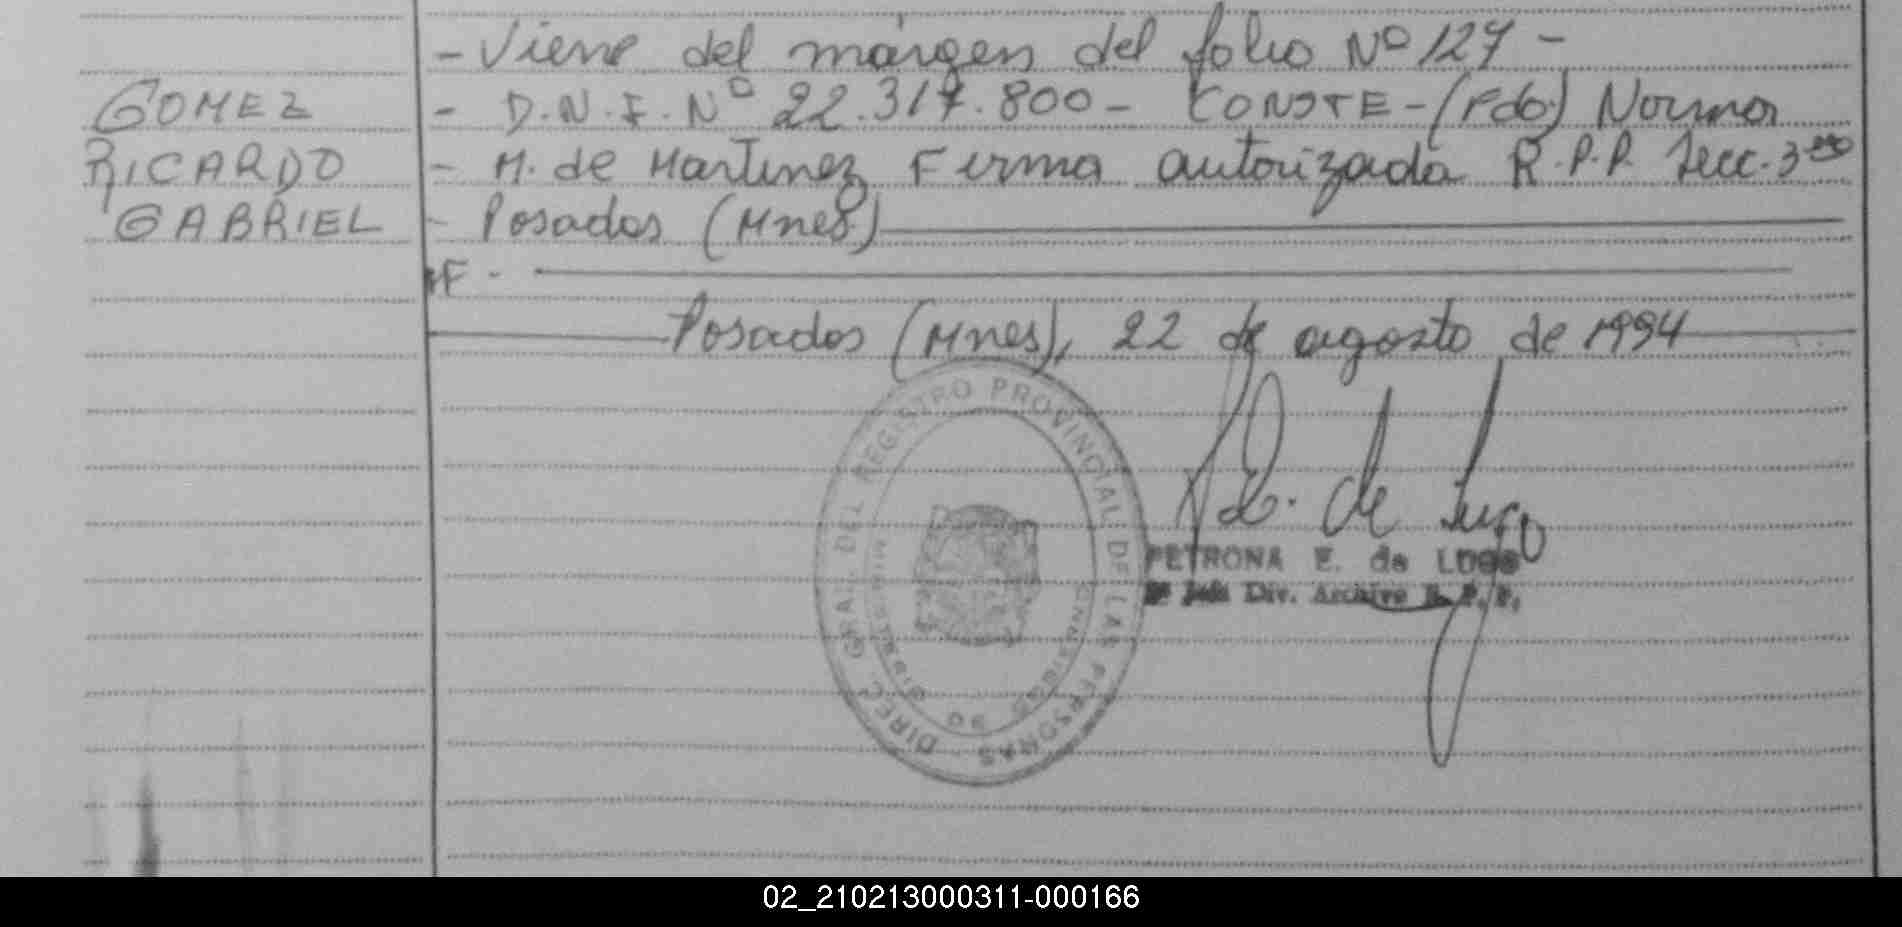 - Viene del márgen del folio Nº 127 -
GOMEZ - D.N.I. Nº 22.317.800 - CONSTE - (Fdo) Norma
RICARDO - M. de Martinez Firma autorizada R.P.P. Secc. 3ra
GABRIEL - Posadas (Mnes)
F -
Posadas (Mnes), 22 de agosto de 1994
DIREC. GRAL. DEL REGISTRO PROVINCIAL DE LAS PERSONAS
de Lugo
PETRONA E. de LUGO
Div. Archivo R. P. P.
02_210213000311-000166